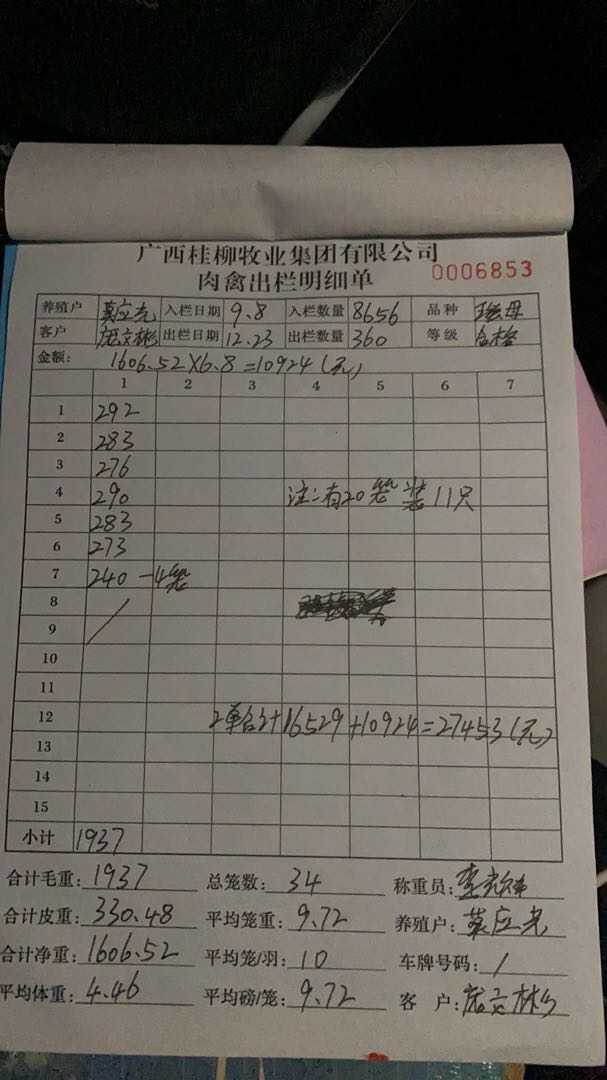 广西桂柳牧业集团有限公司
肉禽出栏明细单 0006853
养殖户 莫应光 入栏日期 9.8 入栏数量 8656 品种
客户 庞文彬 出栏日期 12.23 出栏数量 360 等级 合格
金额: 1606.52×6.8=10924(元)
1 2 3 4 5 6 7
1 292
2 283
3 276
4 290 注:有20笼装11只
5 283
6 273
7 240 -4笼
8
9 /
10
11
12 2单合计16529+10924=27453(元)
13
14
15
小计 1937
合计毛重: 1937 总笼数: 34 称重员:
合计皮重: 330.48 平均笼重: 9.72 养殖户: 莫应光
合计净重: 1606.52 平均笼/羽: 10 车牌号码: /
平均体重: 4.46 平均磅/笼: 9.72 客 户: 庞文彬